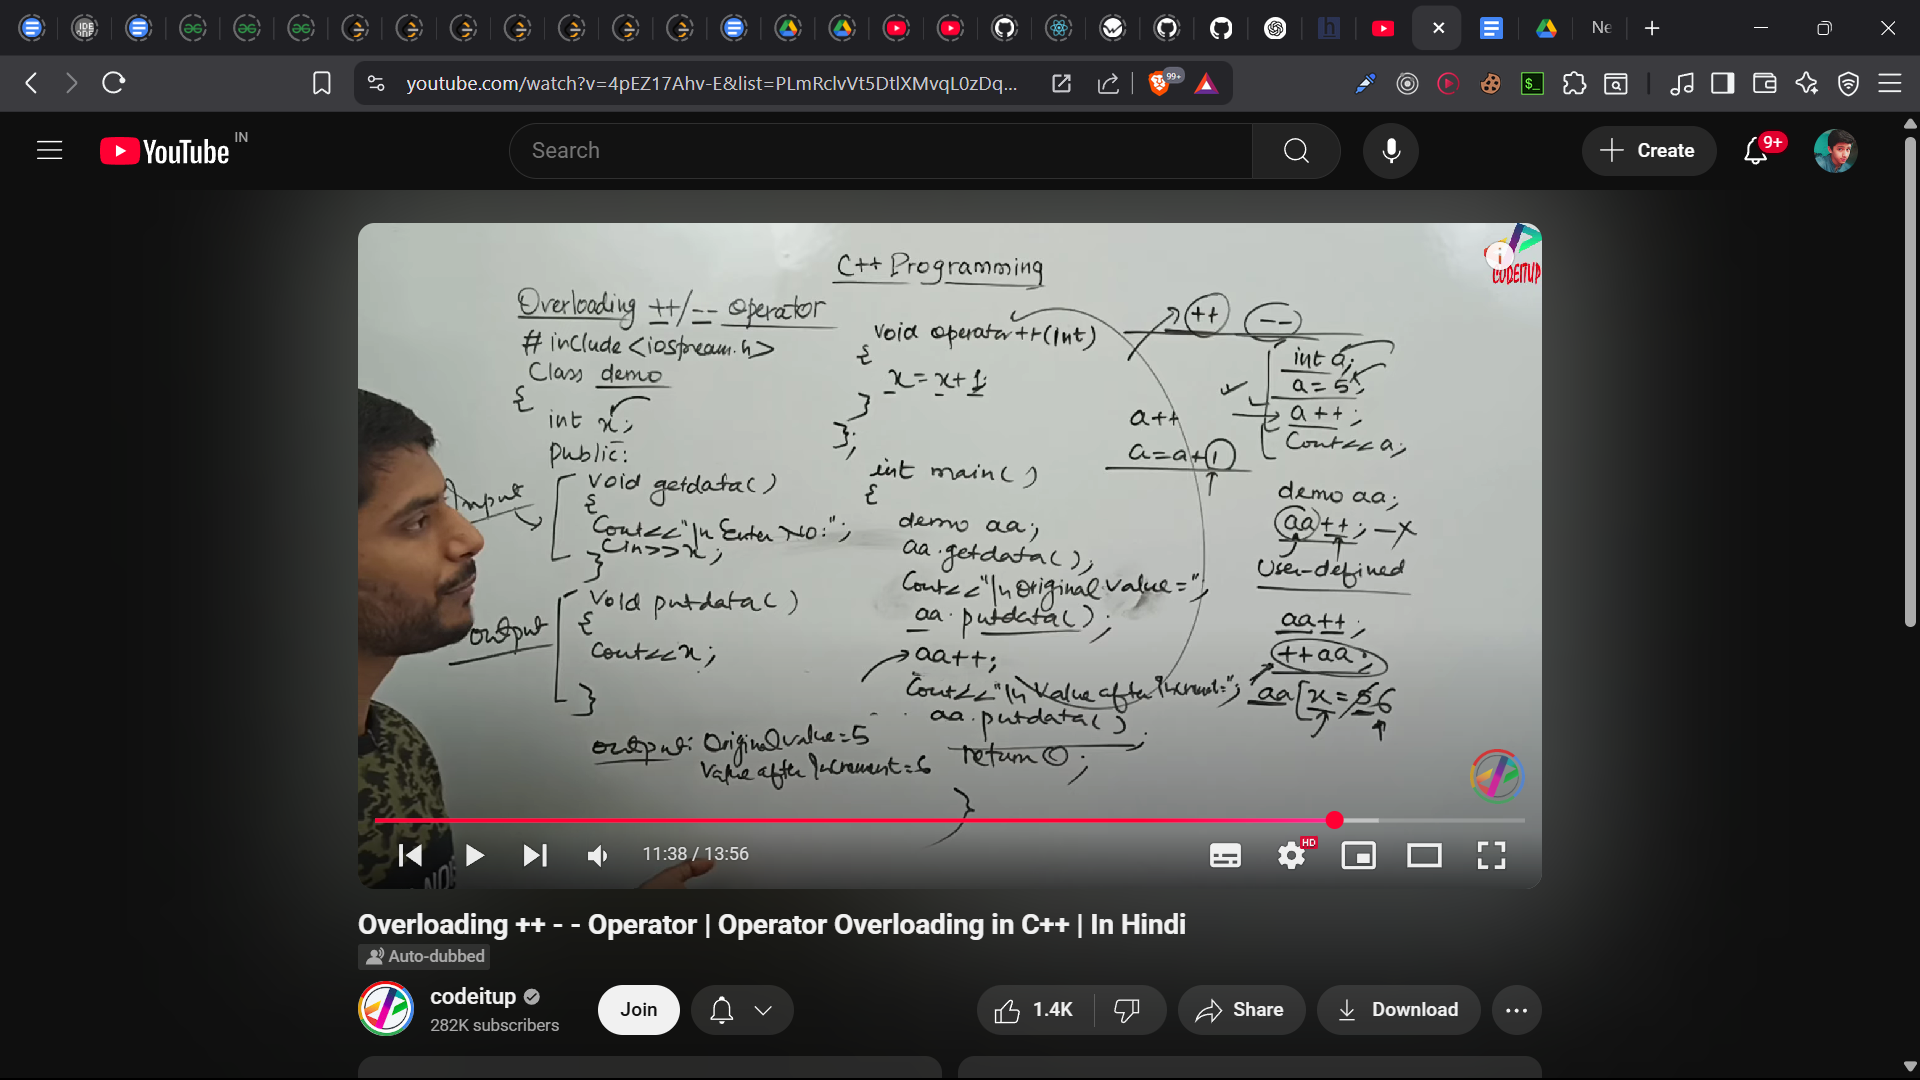 Ne
youtube.com/watch?v=4pEZ17Ahv-E&list=PLmRclvVt5DtlXMvqL0zDq...
99+
YouTube IN
Search
Create
9+
CODEITUP
C++ Programming
Overloading ++/-- operator
#include<iostream.h>
Class demo
{
int x;
public:
Input
void getdata()
{
Cout<<"\n Enter No:";
Cin>>x;
}
output
Void putdata()
{
Cout<<x;
}
output: Original value=5
Value after Increment=6
void operator++(int)
{
x=x+1;
}
};
int main()
{
demo aa;
aa.getdata();
Cout<<"\n Original value=";
aa.putdata();
aa++;
Cout<<"\n Value after Increment=";
aa.putdata();
return 0;
}
++ --
int a;
a=5;
a++;
Cout<<a;
a++
a=a+1
demo aa;
aa++; —X
User-defined
aa++;
++aa;
aa[x=56
11:38 / 13:56
HD
Overloading ++ - - Operator | Operator Overloading in C++ | In Hindi
Auto-dubbed
codeitup
282K subscribers
Join
1.4K
Share
Download